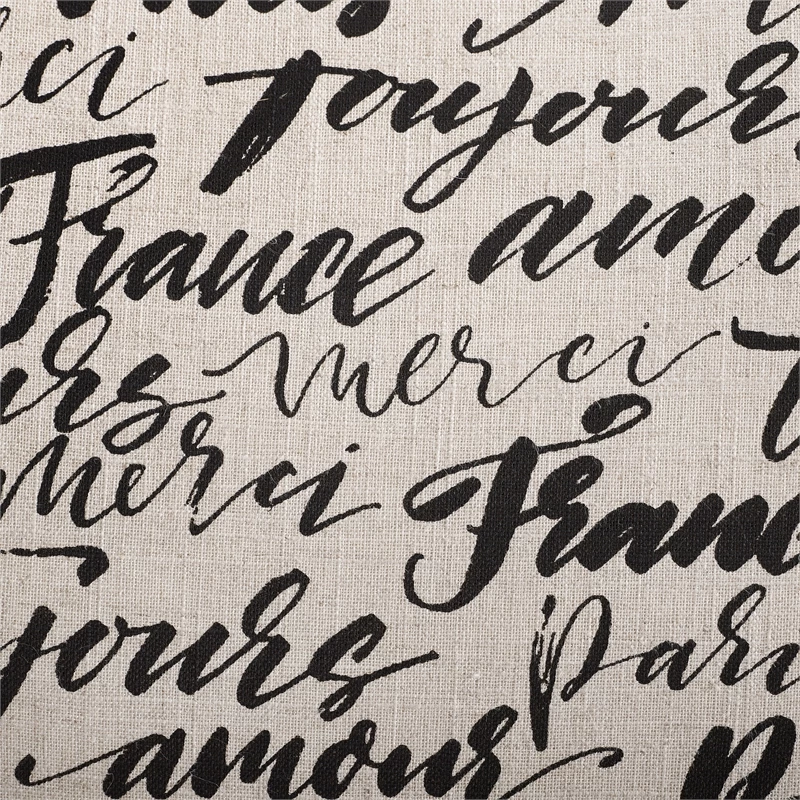 ci Toujours
France amo
urs merci T
merci Franc
jours Pari
amour P